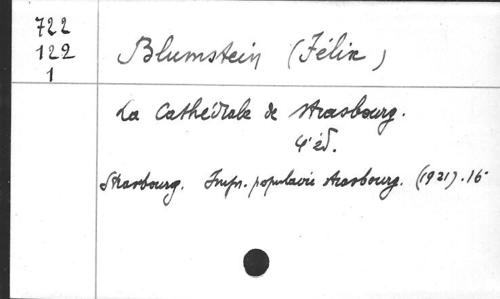 722
122
1
Blumstein (Félix)
La Cathédrale de Strasbourg.
4e éd.
Strasbourg. Impr. populaire Strasbourg. (1921). 16°